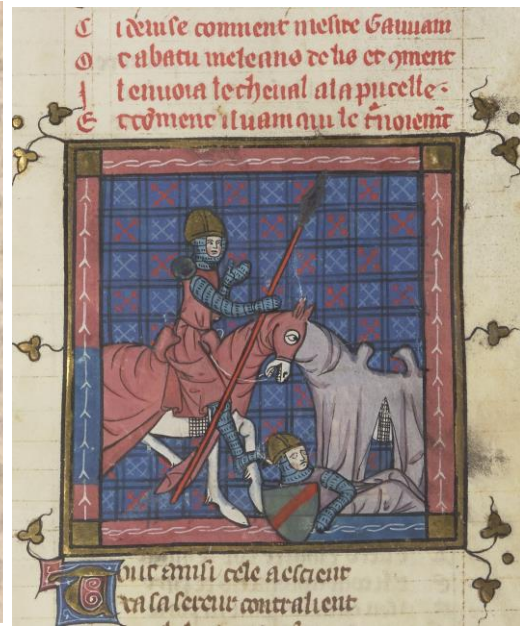 C i deuise comment mesire Gauuain
O t abatu meleans de lis et qment
I l enuoia le cheual a la pucelle·
E t coment il uainqui le t̃noiemt
Tout ainsi cele a escient
Va sa sereur contralient